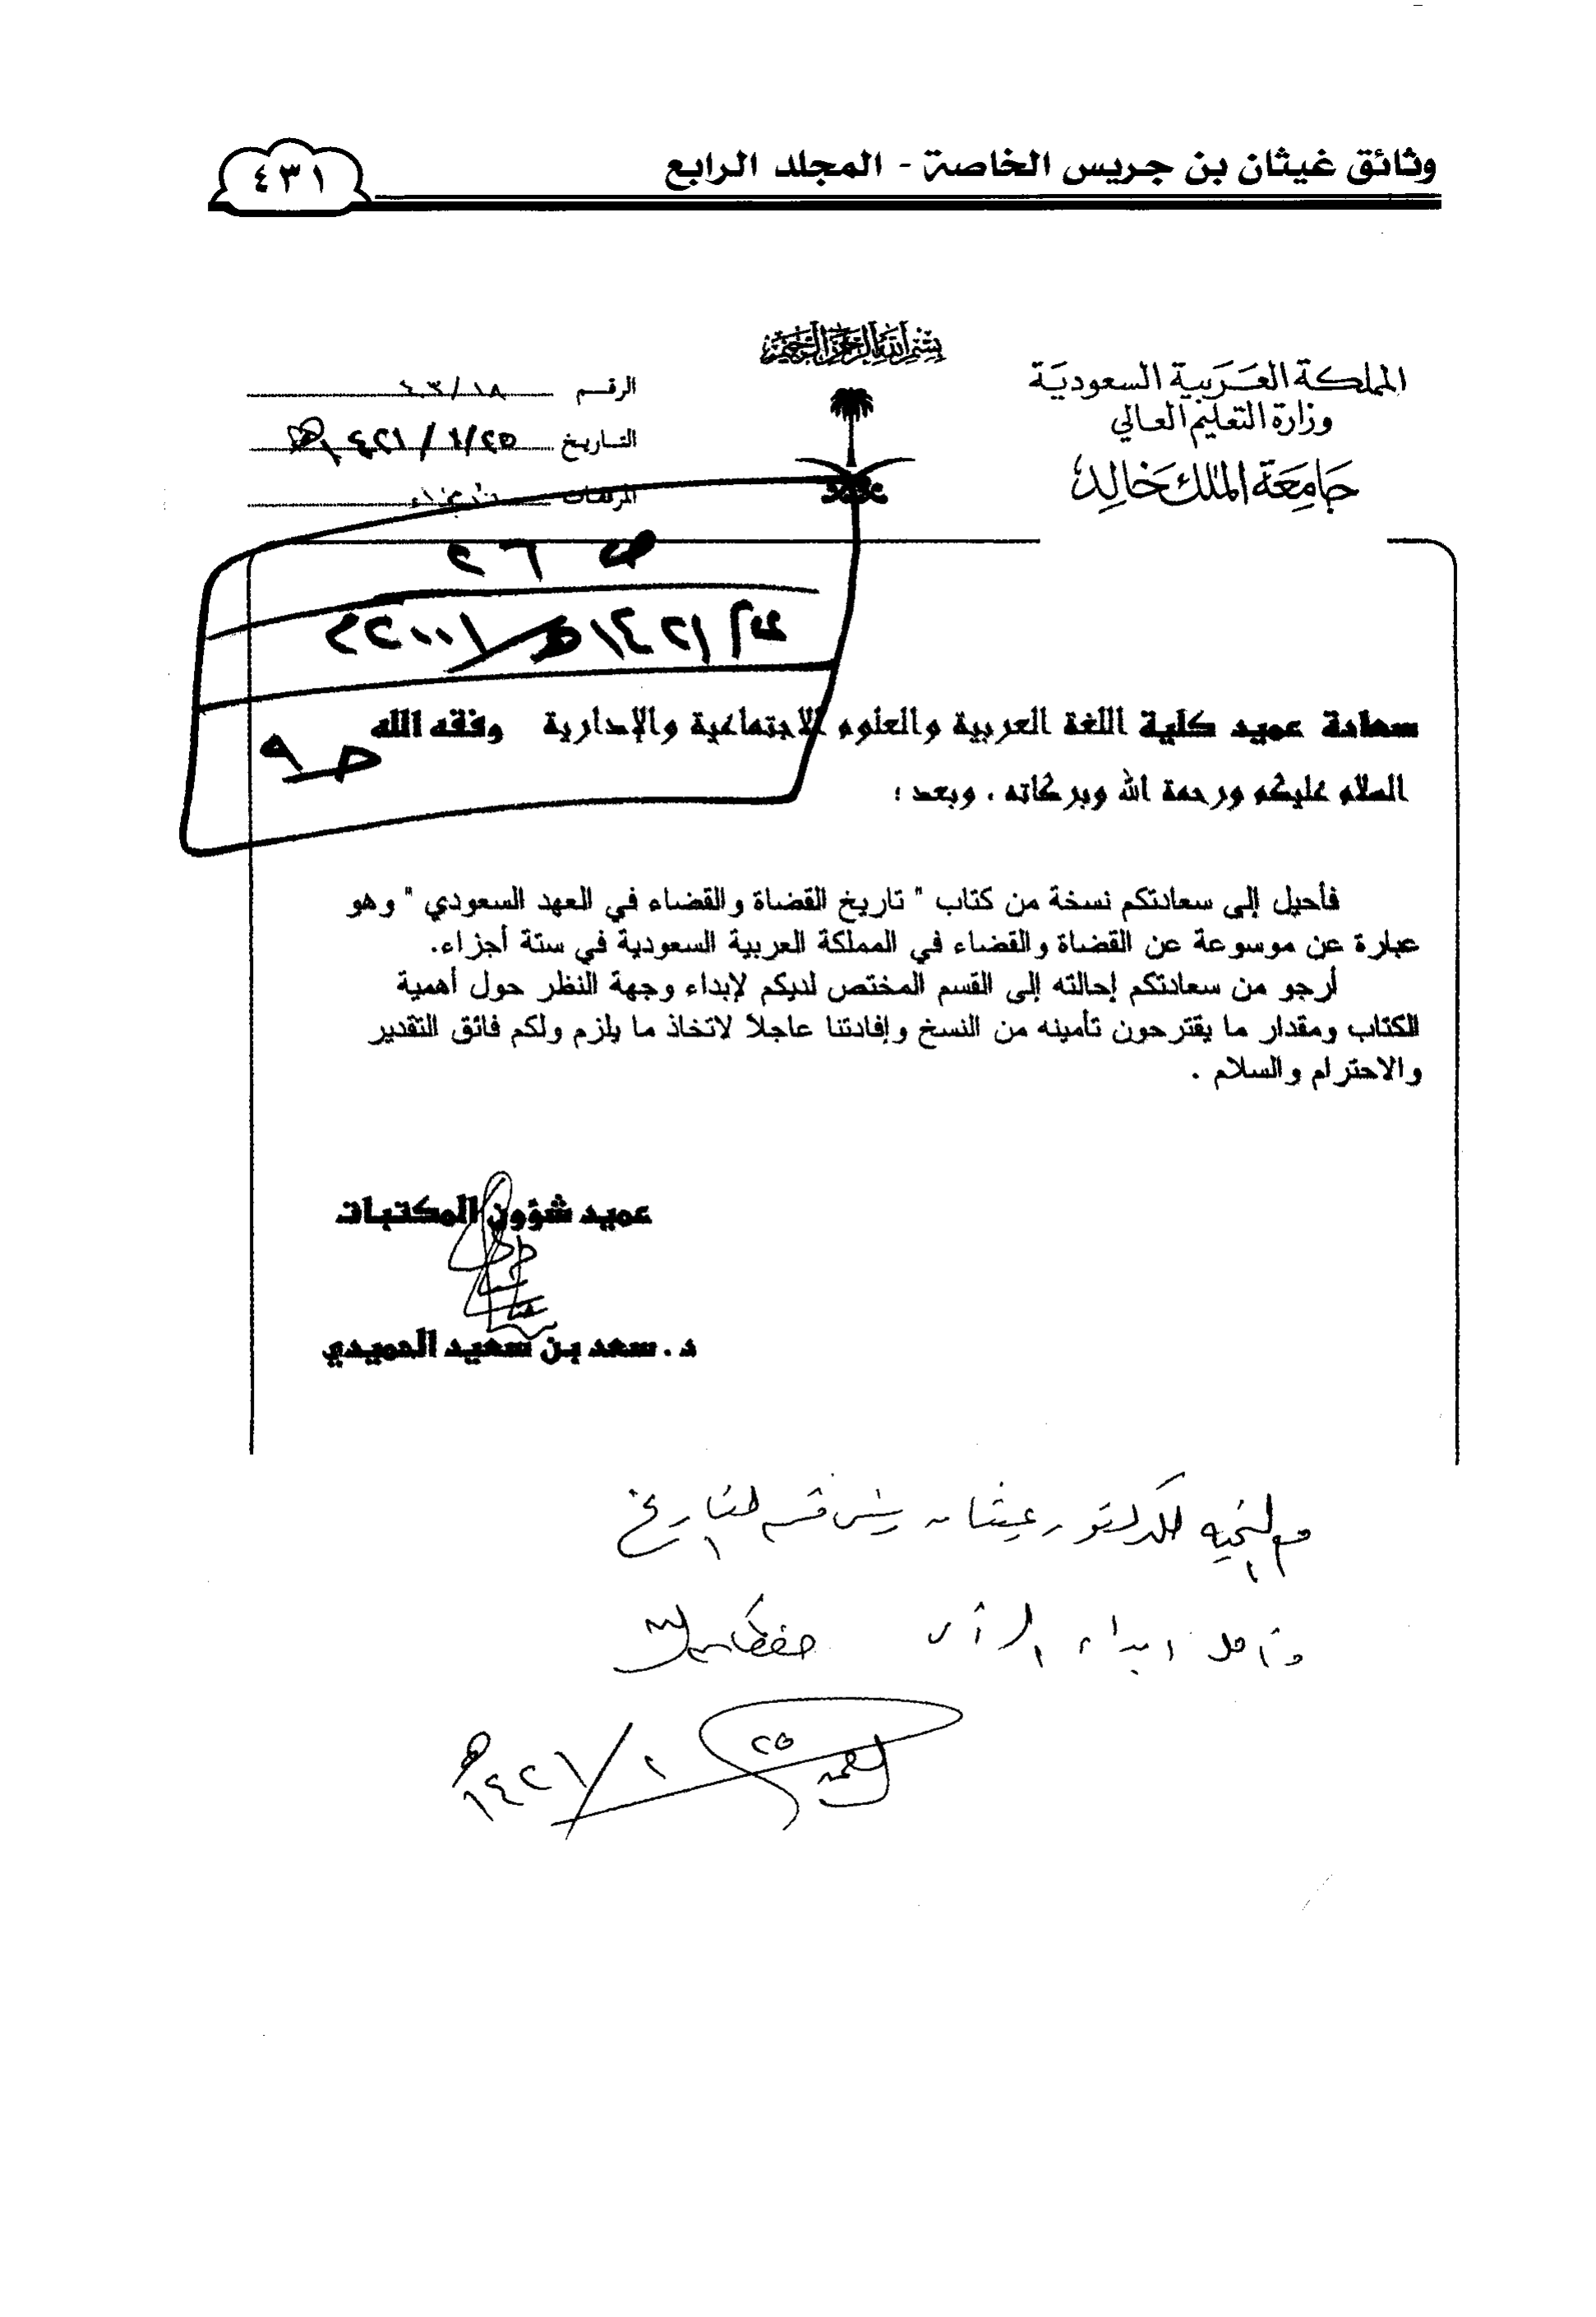 وثائق غيثان بن جريس الخاصة - المجلد الرابع
٤٣١
بسم الله الرحمن الرحيم
المملكة العربية السعودية
وزارة التعليم العالي
جامعة الملك خالد
الرقم ٤٠٣/١٨
التاريخ ١٤٢١/١/٢٥هـ
المرفقات
ص ٢٦
عام ١٤٢١هـ/٢٠٠٠م
سعادة عميد كلية اللغة العربية والعلوم الاجتماعية والإدارية وفقه الله
السلام عليكم ورحمة الله وبركاته ، وبعد ؛
فأحيل إلى سعادتكم نسخة من كتاب " تاريخ القضاة والقضاء في العهد السعودي " وهو
عبارة عن موسوعة عن القضاة والقضاء في المملكة العربية السعودية في ستة أجزاء.
أرجو من سعادتكم إحالته إلى القسم المختص لديكم لإبداء وجهة النظر حول أهمية
الكتاب ومقدار ما يقترحون تأمينه من النسخ وإفادتنا عاجلاً لاتخاذ ما يلزم ولكم فائق التقدير
والاحترام والسلام .
عميد شؤون المكتبات
د. سعد بن سعيد الحميدي
مع التحية للدكتور غيثان رئيس قسم التاريخ
وآمل ابداء الرأي حفظكم الله
٢٥/١/١٤٢١هـ